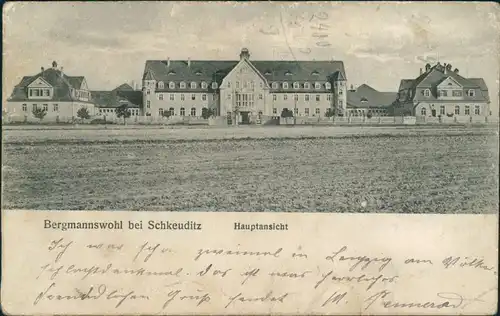 Bergmannswohl bei Schkeuditz Hauptansicht
Ich war schon zweimal in Leipzig am Völker
schlachtdenkmal. das ist was herrliches
Freundlichen Gruß sendet M.